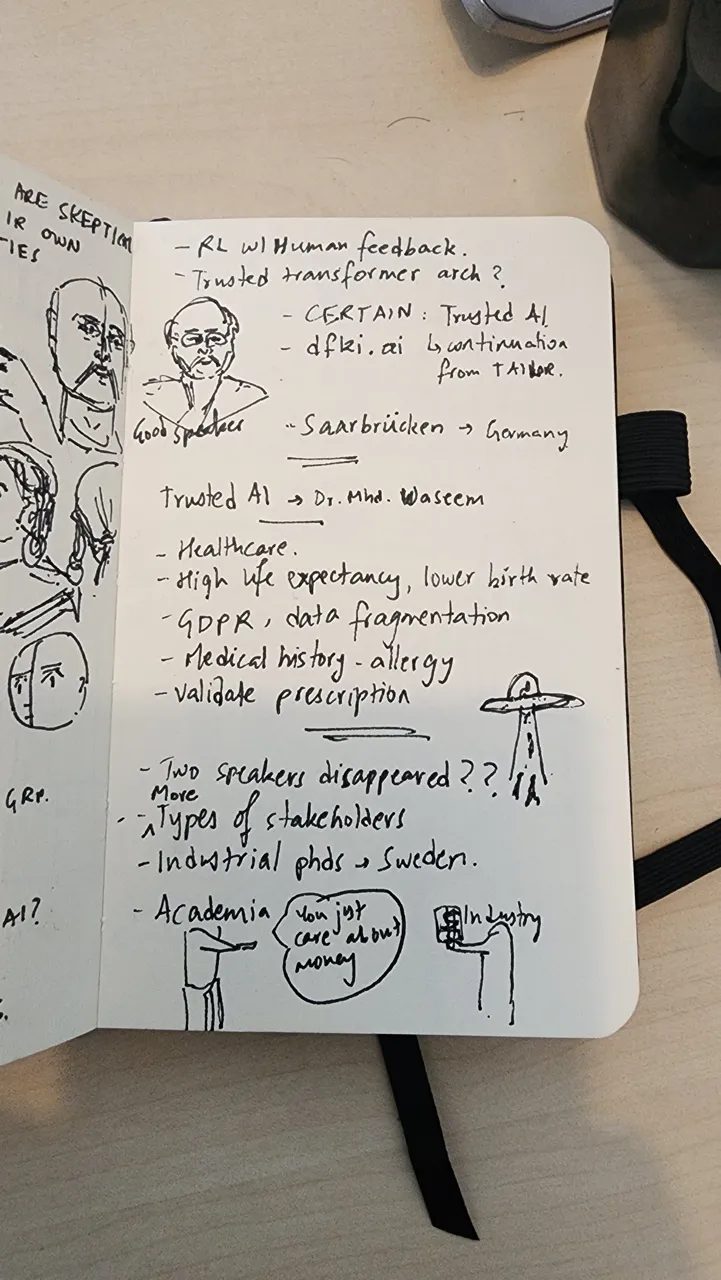 ARE SKEPTICAL
IR OWN
TIES
GRP.
AI?
- RL w/ Human feedback.
- Trusted transformer arch?
- CERTAIN: Trusted AI
- dfki.ai ↳ continuation
from TAILOR.
Good speaker
- Saarbrücken → Germany
Trusted AI → Dr. Mhd. Waseem
- Healthcare.
- High life expectancy, lower birth rate
- GDPR, data fragmentation
- Medical history - allergy
- validate prescription
- Two speakers disappeared??
More
- ^Types of stakeholders
- Industrial phds → Sweden.
- Academia
You just
care about
money
$
Industry